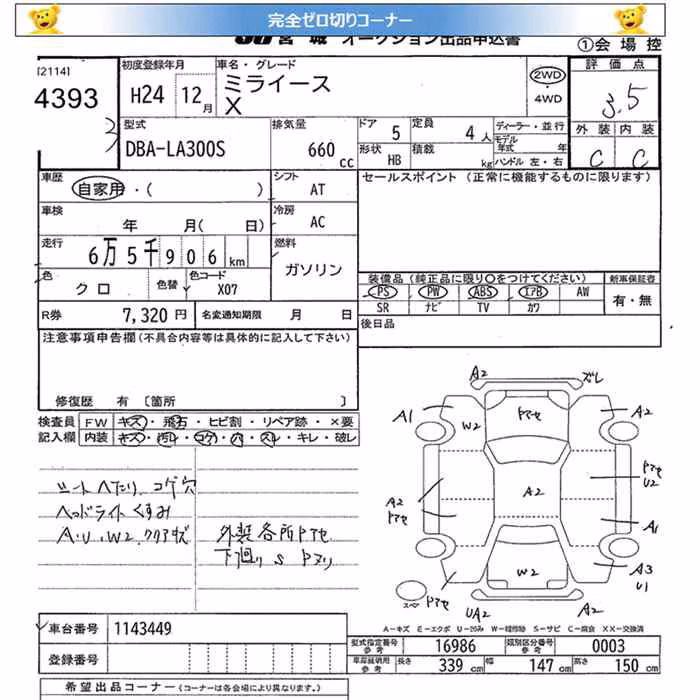 完全ゼロ切りコーナー
JU宮城 オークション出品申込書
①会場控
[2114]
4393
初度登録年月
H24 12月
車名・グレード
ミライース
X
2WD
・
4WD
評価点
3.5
外装 内装
C C
型式
DBA-LA300S
排気量
660 cc
ドア 5
定員 4人
ディーラー・並行
モデル年式 年
形状 HB
積載 kg
ハンドル 左・右
車歴
自家用・( )
シフト
AT
セールスポイント (正常に機能するものに限ります)
車検
年 月( 日)
冷房
AC
走行
6万5千906km
燃料
ガソリン
色
クロ
色替
色コード
X07
装備品 (純正品に限り○をつけてください)
新車保証書
PS PW ABS エアB AW
SR ナビ TV カワ
有・無
R券 7,320円
名変通知期限 月 日
後日品
注意事項申告欄 (不具合内容等は具体的に記入して下さい)
修復歴 有 〔箇所 〕
検査員記入欄
FW キズ・飛石・ヒビ割・リペア跡・×要
内装 キズ・汚レ・コゲ・穴・スレ・キレ・破レ
シートヘたり、コゲ穴
ヘッドライトくすみ
A・U・W2、クリアキズ
外装各所トアセ
下廻りS トヌリ
A2 ズレ
A1 W2 トアセ A2
トアセ
U2
A2
トアセ
A2
A1
W2
A3
U1
スペア トアセ
UA2 A2
A-キズ E-エクボ U-凹み W-補修跡 S-サビ C-腐食 XX-交換済
車台番号 1143449
登録番号
型式指定番号
参考
16986
類別区分番号
参考
0003
車庫証明用
参考
長さ 339cm
幅 147cm
高さ 150cm
希望出品コーナー (コーナーは各会場により異なります。)